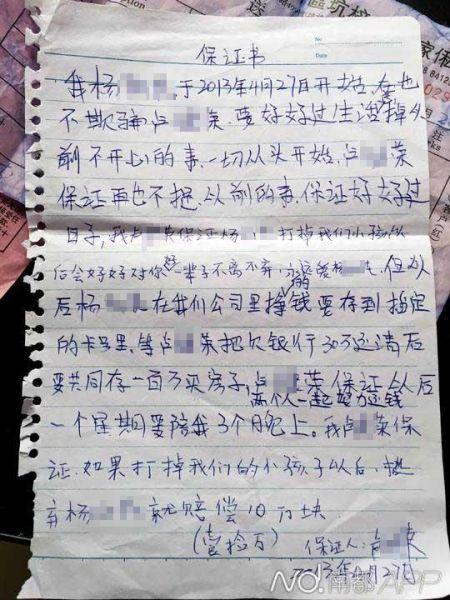 保证书
No.
Date
我杨 于2013年4月27日开始, 在也
不欺骗卢 荣. 要好好过生活掉从
前不开心的事. 一切从头开始. 卢 荣
保证再也不提. 从前的事. 保证好好过
日子, 我卢 荣保证杨 打掉我们小孩以
后会好好对你好一辈子不离不弃. 永远的爱杨 . 但从
后杨 在我们公司里挣钱要存到指定
的卡号里. 等卢 荣把欠银行30万还清后
要共同存一百万买房子, 卢 荣保证从后
两个人一起努力还钱
一个星期要陪我3个晚上。我卢 荣保
证. 如果打掉我们的小孩子以后. 抛
弃杨 就赔偿10万块.
(壹拾万)
保证人: 荣
2013年4月27日
NO.南都APP